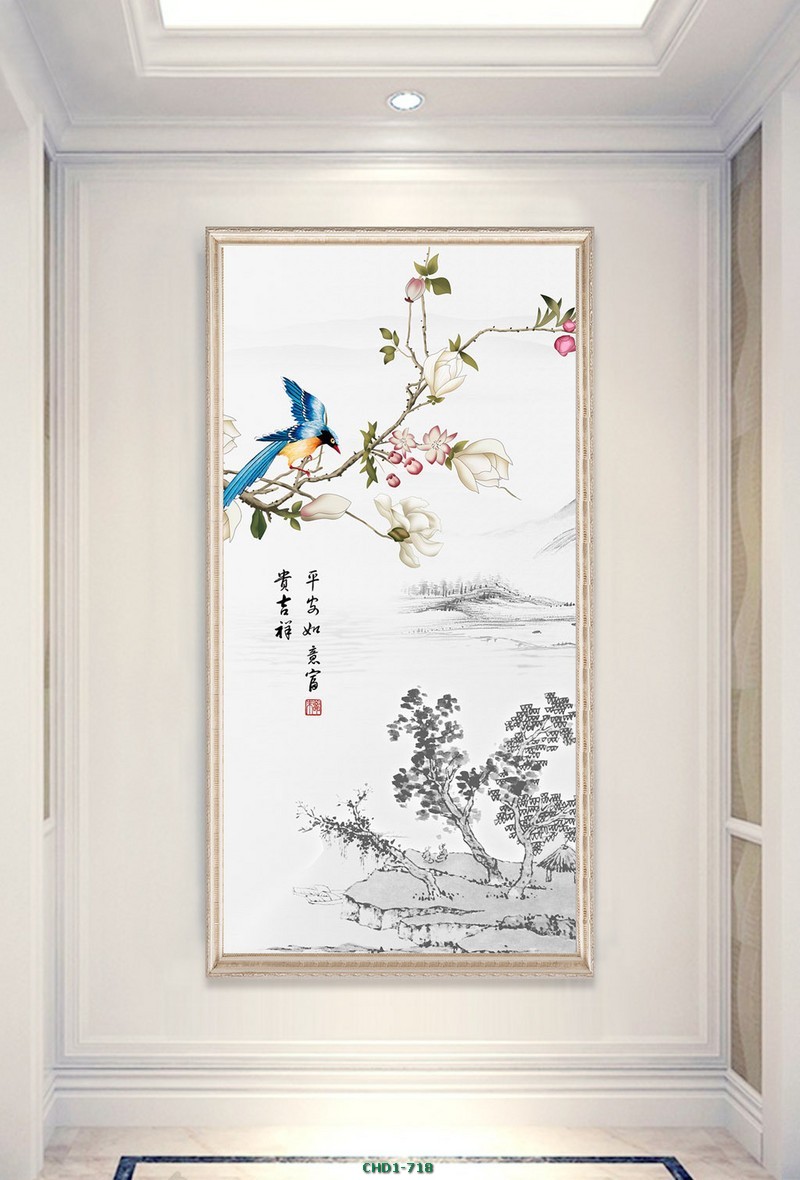 平安如意富
貴吉祥
CHD1-718